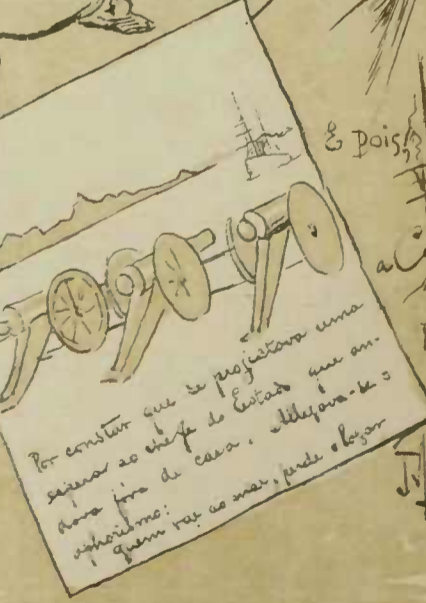 Por constar que se projectava uma
espera ao chefe do Estado que an-
dava fóra de casa. Allegava-se o
aphorismo:
Quem vae ao mar, perde o lugar
E Dois
a